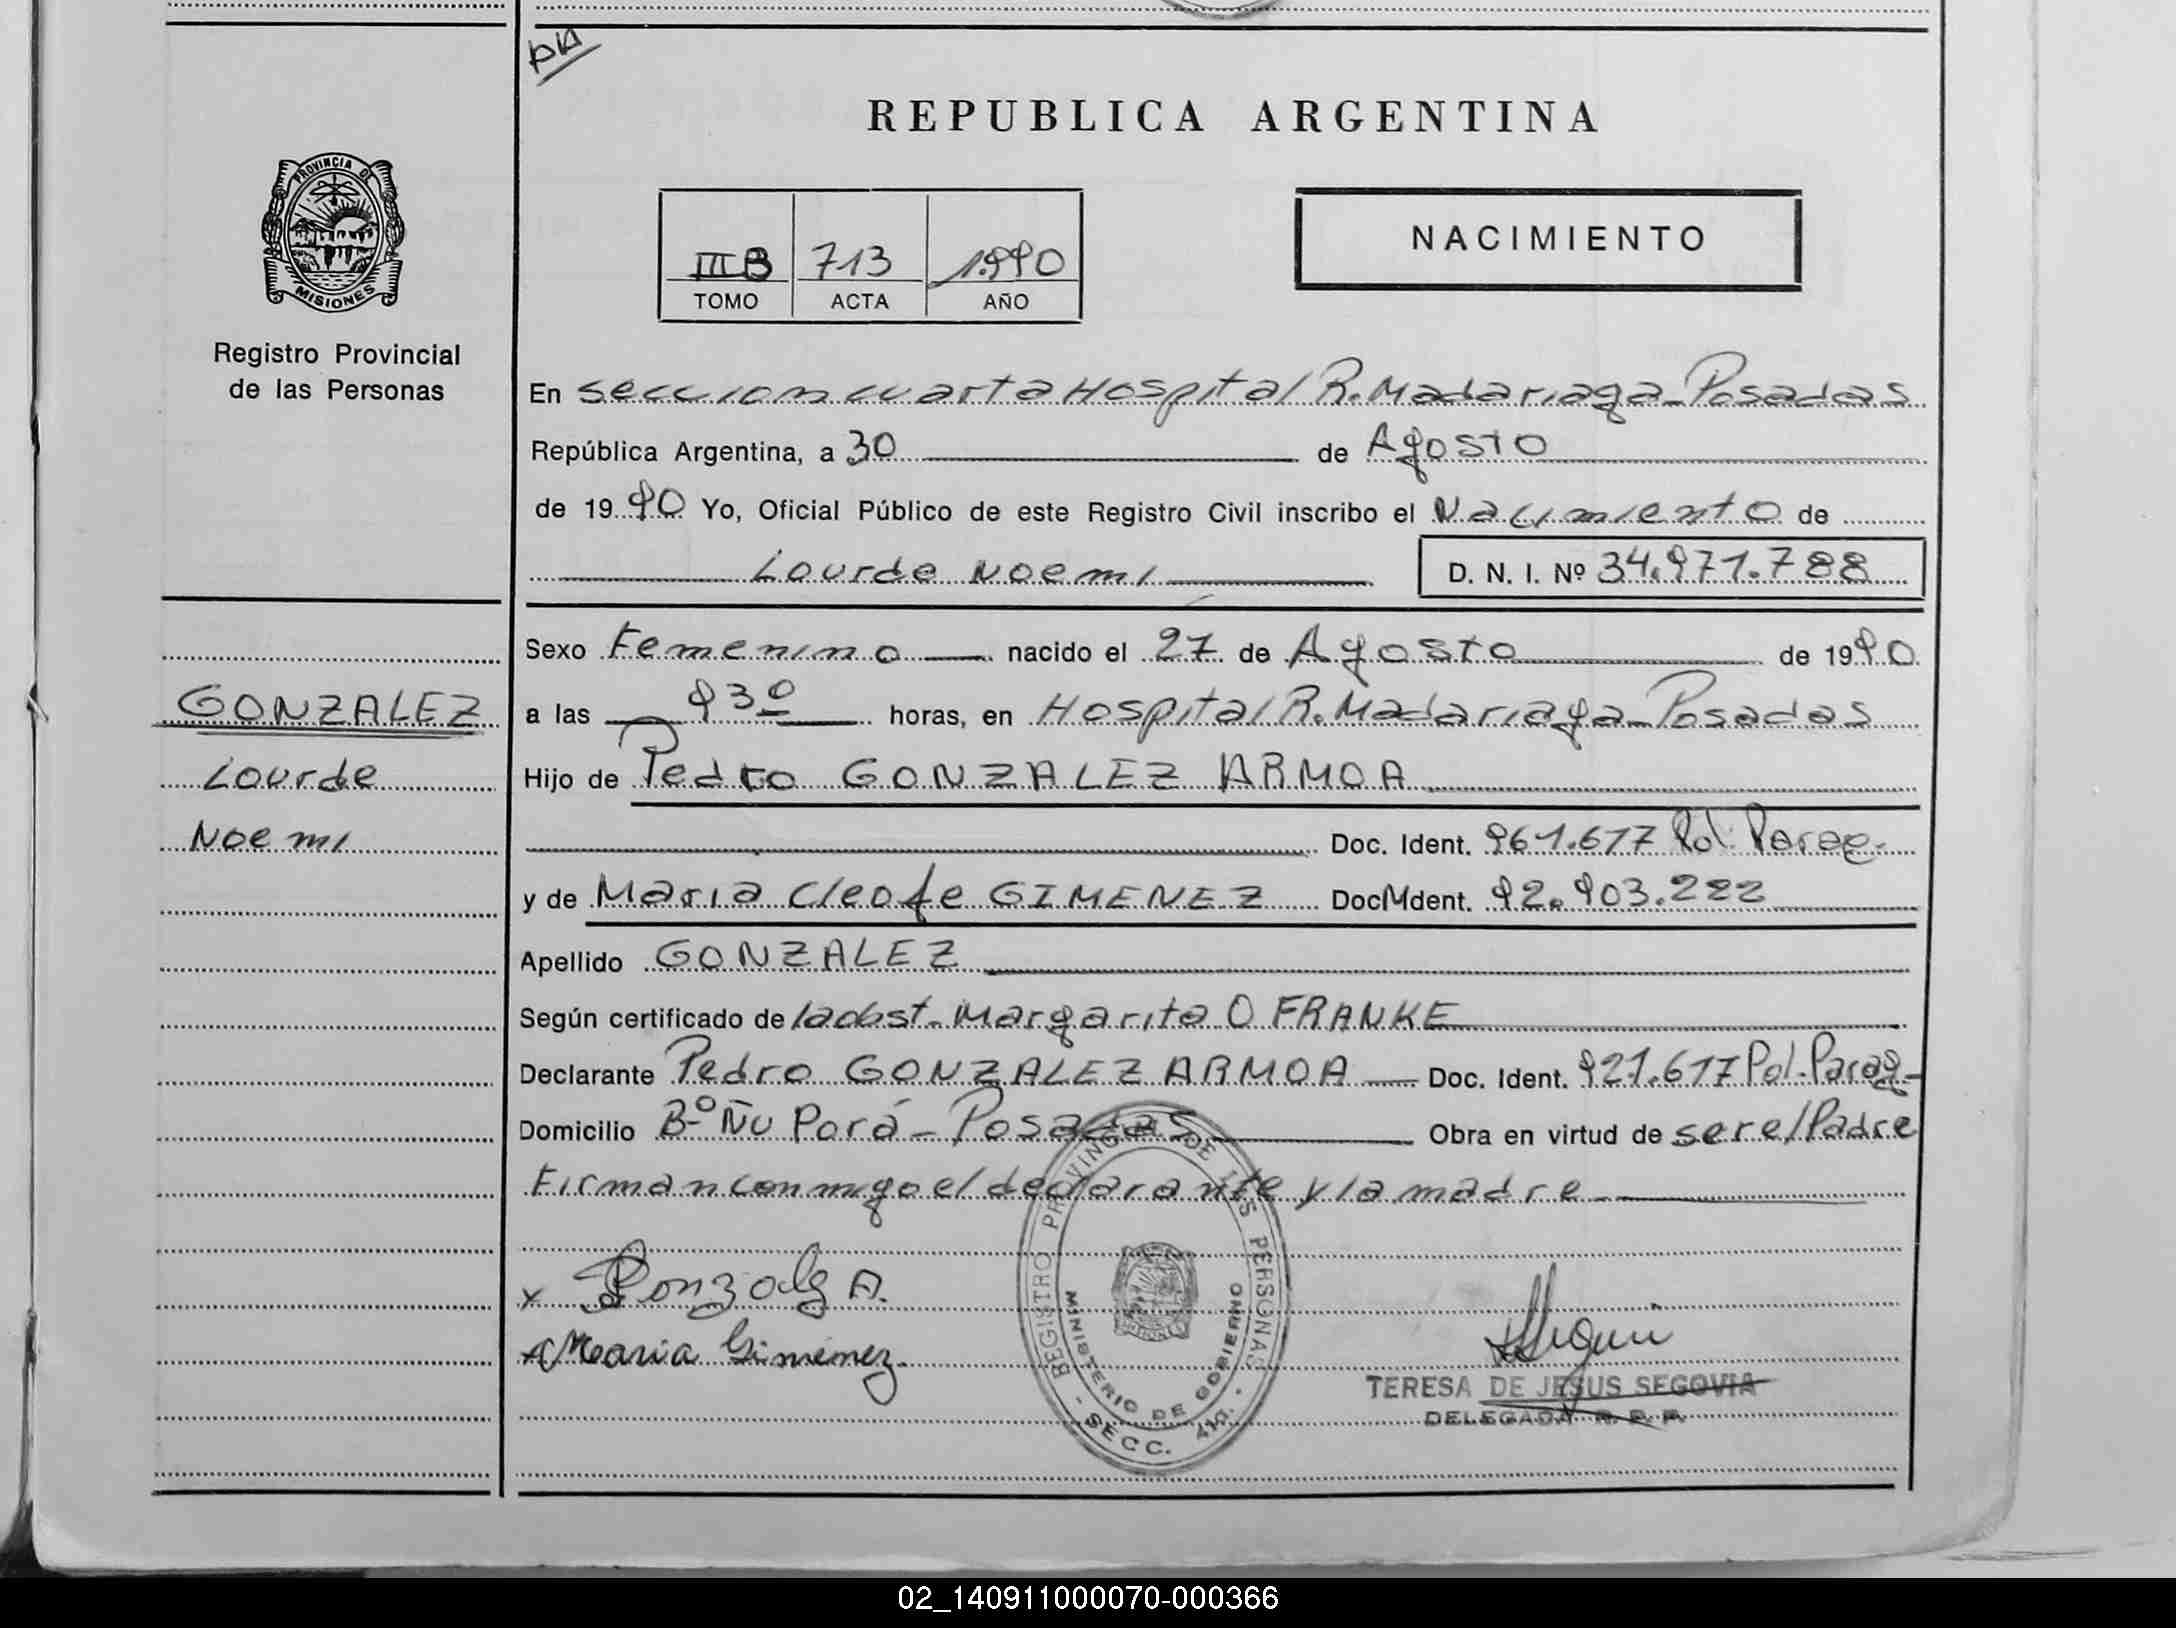 REPUBLICA ARGENTINA
PROVINCIA DE
MISIONES
Registro Provincial
de las Personas
III B 713 1.990
TOMO ACTA AÑO
NACIMIENTO
En seccion cuarta Hospital R. Madariaga - Posadas
República Argentina, a 30 de Agosto
de 1990 Yo, Oficial Público de este Registro Civil inscribo el Nacimiento de
Lourde Noemi
D. N. I. Nº 34.971.788
GONZALEZ
Lourde
Noemi
Sexo Femenino nacido el 27 de Agosto de 1990
a las 9 30 horas, en Hospital R. Madariaga - Posadas
Hijo de Pedro GONZALEZ ARMOA
Doc. Ident. 961.617 Pol. Parag.
y de Maria Cleofe GIMENEZ Doc. Ident. 92.903.222
Apellido GONZALEZ
Según certificado de la obst. Margarita O FRANKE
Declarante Pedro GONZALEZ ARMOA Doc. Ident. 921.617 Pol. Parag-
Domicilio Bº Ñu Porá - Posadas Obra en virtud de ser el Padre
Firman conmigo el declarante y la madre
x Gonzalez A.
x Maria Gimenez.
REGISTRO PROVINCIAL DE LAS PERSONAS
MINISTERIO DE GOBIERNO
- SECC. 4ta. -
TERESA DE JESUS SEGOVIA
DELEGADA R. P. P.
02_140911000070-000366